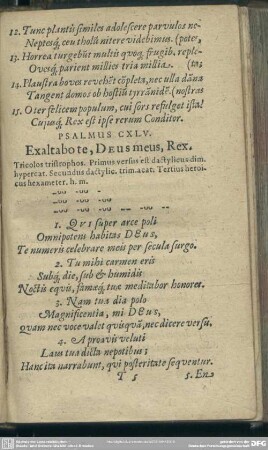 12. Tunc plantis similes adolescere parvulos ne-
Neptesq́, ceu tholũ nitere videbimus. (potes,
13. Horrea turgebũt multis quoq́, frugib. reple-
Ovesq́, parient millies tria millia. (ta,
14. Plaustra boves revehẽt cõpleta, nec ulla dãna
Tangent domos ob hostiũ tyrãnidẽ. (nostras
15. O ter felicem populum, cui sors refulget ista!
Cujusq́, Rex est ipse rerum Conditor.
PSALMUS CXLV.
Exaltabo te, Deus meus, Rex.
Tricolos tristrophos. Primus versus est dactylicus dim.
hypercat. Secundus dactylic. trim. acat. Tertius heroi-
cus hexameter. h. m.
1. QUI super arce poli
Omnipotens habitas DEus,
Te numeris celebrare meis per secula surgo.
2. Tu mihi carmen eris
Subq́, die, sub & humidis
Noctis equis, famæq́, tuæ meditabor honores.
3. Nam tua dia polo
Magnificentia, mi DEus,
Quam nec voce valet quisquã, nec dicere versu.
4. A proavis veluti
Jam tua dicta nepotibus
Hanc ita narrabunt, qui posteritate sequentur.
T 5 5. En